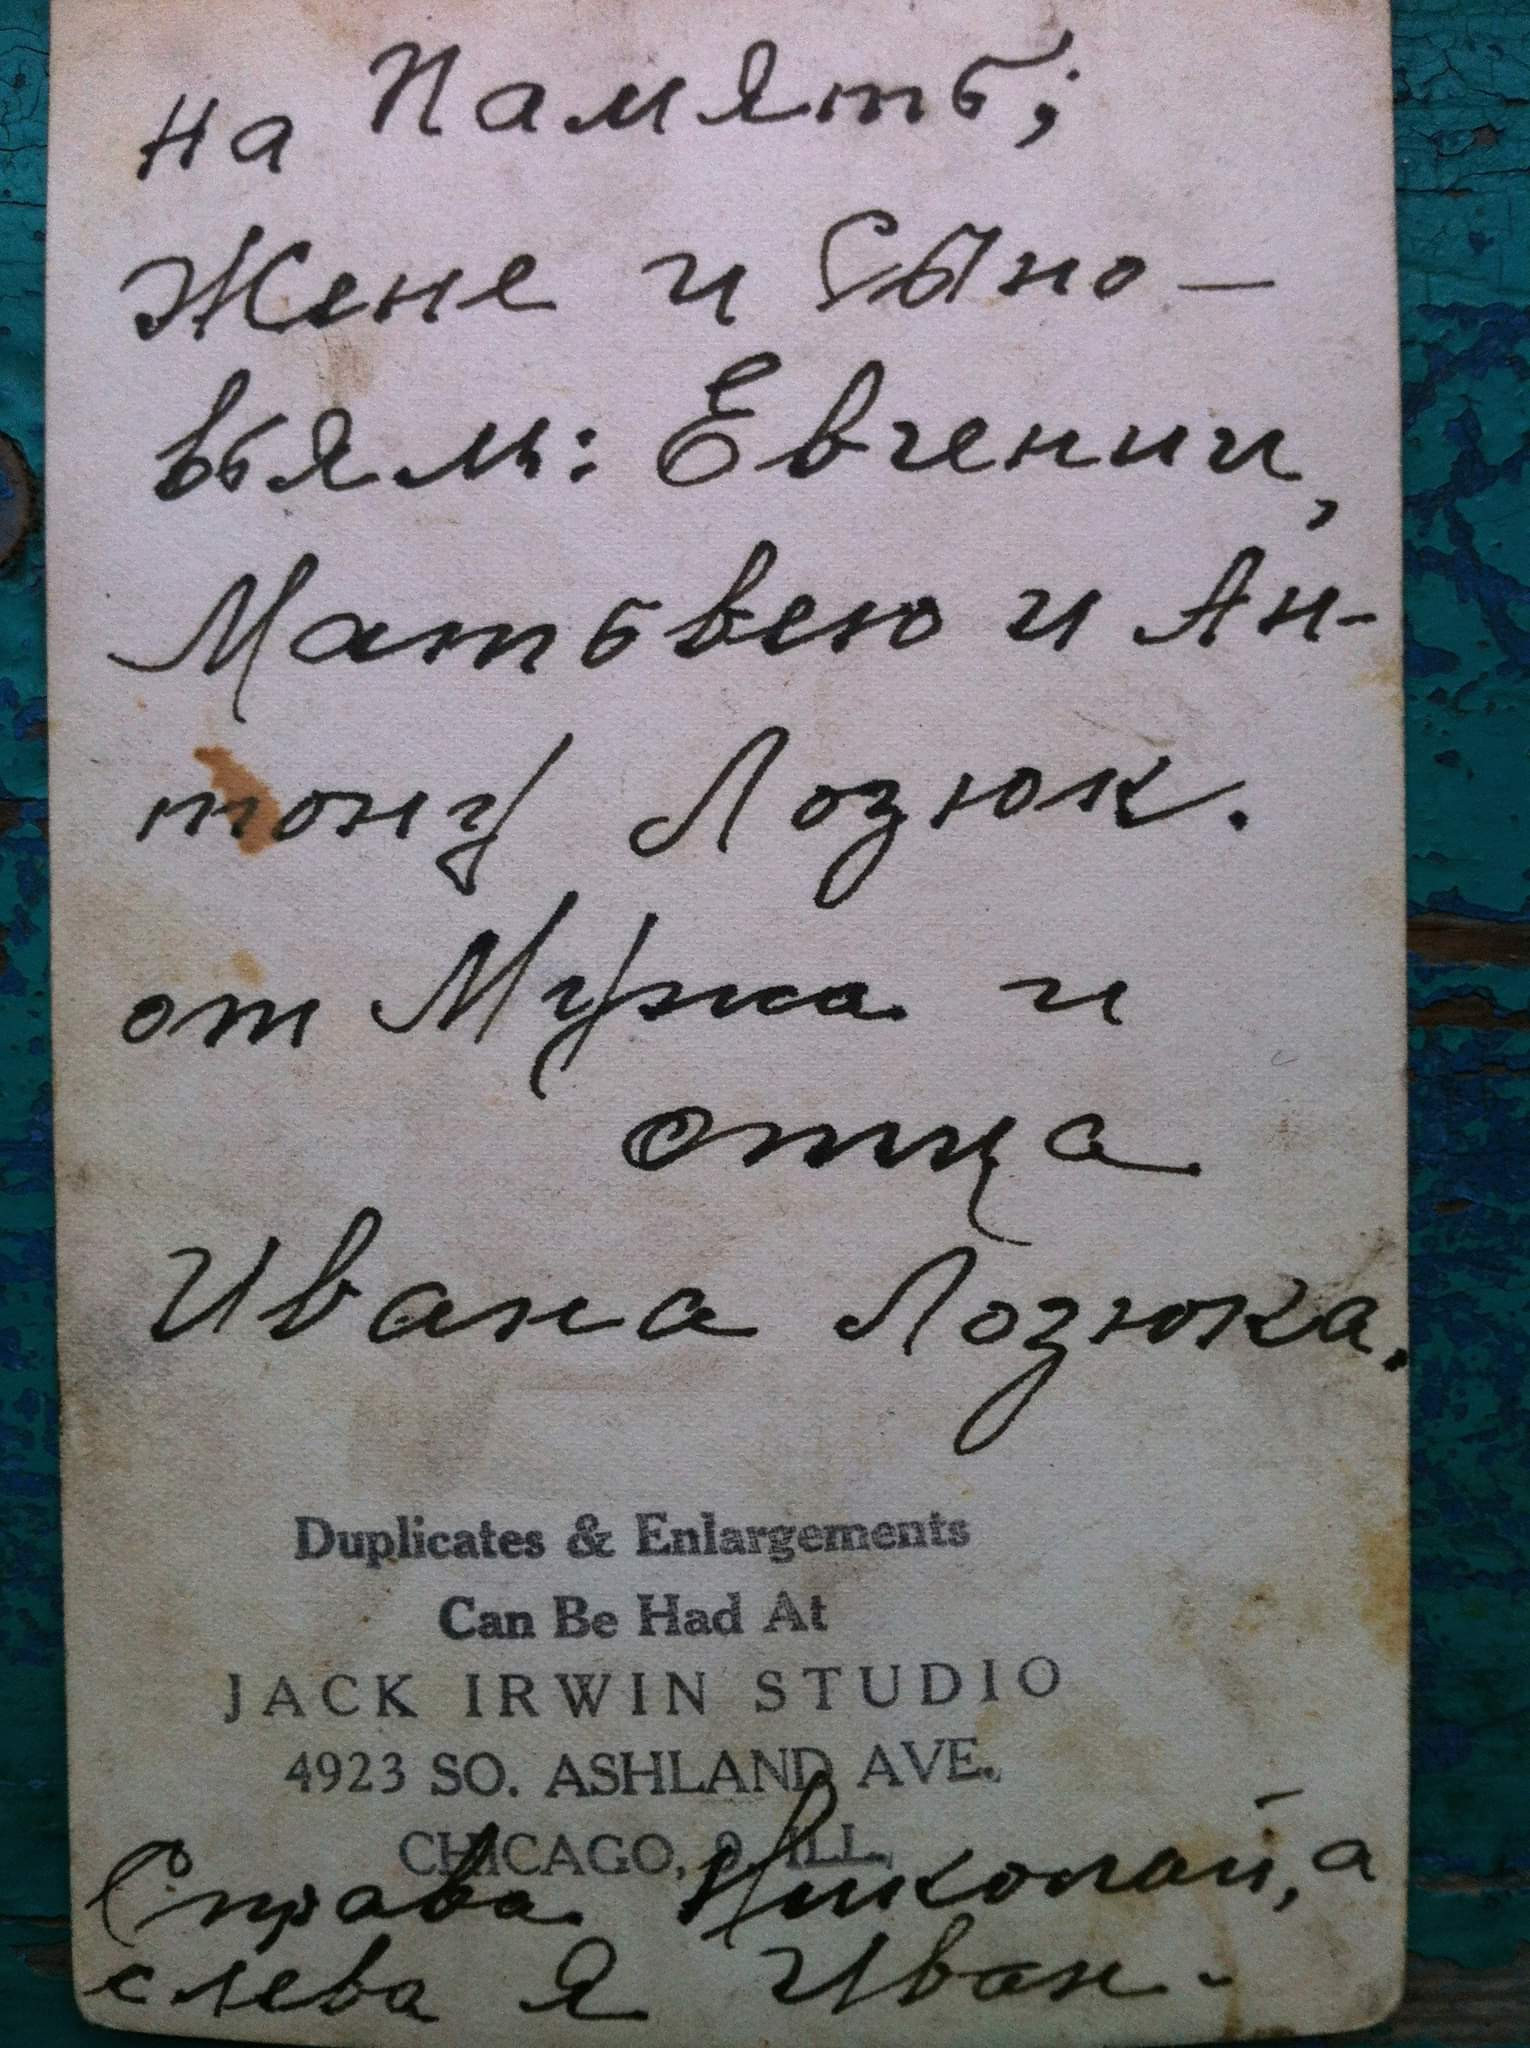 на Память;
Жене и Сыно—
вьям: Евгении,
Матьвею и Ан-
тону Лозюк.
от Мужа и
отца
Ивана Лозюка.
Duplicates & Enlargements
Can Be Had At
JACK IRWIN STUDIO
4923 SO. ASHLAND AVE.
CHICAGO, 9 ILL.
Справа Николай, а
слева я Иван.-